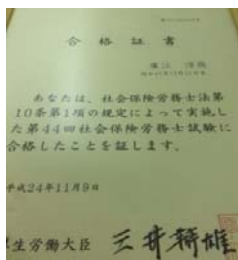 合格証書
あなたは、社会保険労務士法第
10条第1項の規定によって実施し
た第44回社会保険労務士試験に
合格したことを証します。
平成24年11月9日
生労働大臣 三井辨雄